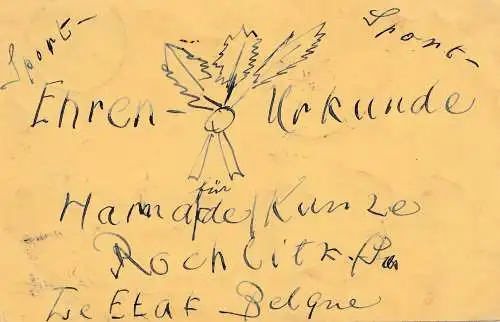 Sport- Sport-
Ehren- Urkunde
für
Kunze
Rochlitz
Etat Belgue